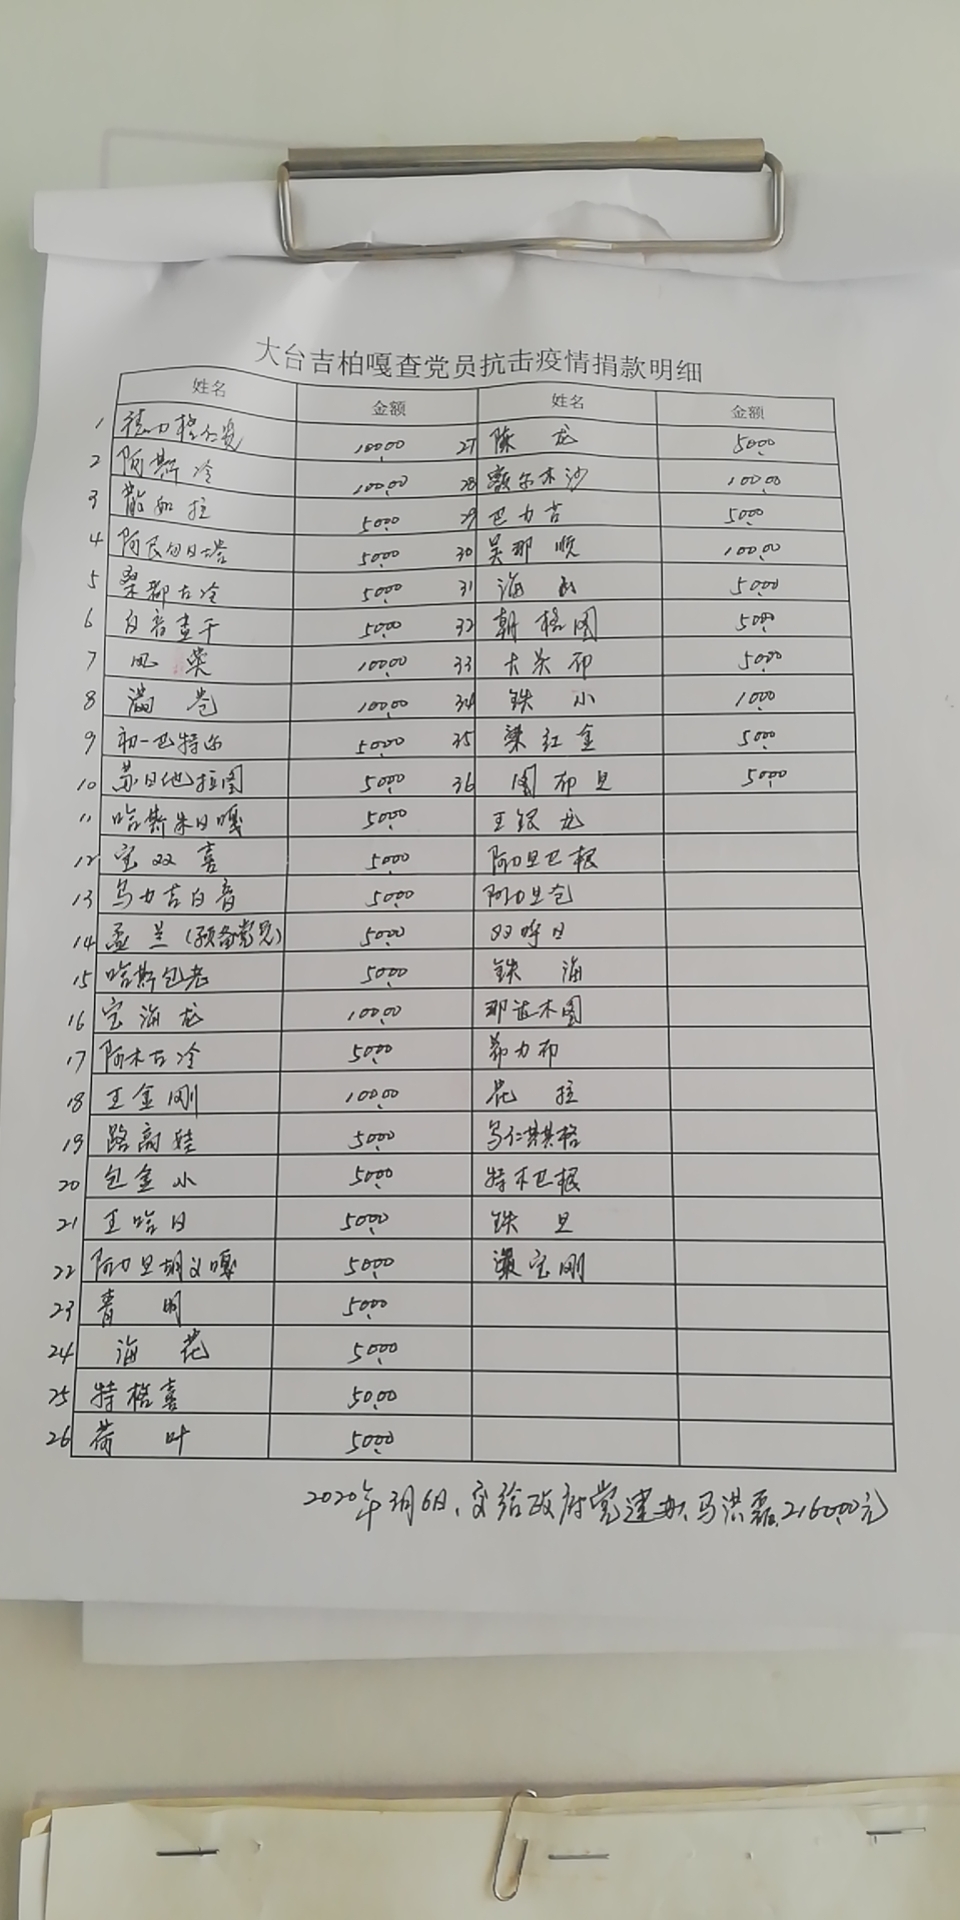 大台吉柏嘎查党员抗击疫情捐款明细
姓名 金额 姓名 金额
1 德力格仁贵 100.00 27 陈龙 50.00
2 阿斯冷 100.00 28 额尔木沙 100.00
3 散如拉 50.00 29 巴力吉 50.00
4 50.00 30 吴那顺 100.00
5 桑都古冷 50.00 31 海山 50.00
6 白音查干 50.00 32 朝格图 50.00
7 凤荣 100.00 33 大茶布 50.00
8 满苍 100.00 34 铁小 10.00
9 初一巴特尔 50.00 35 梁红金 50.00
10 苏日他拉图 50.00 36 图布旦 50.00
11 哈斯朱日嘎 50.00 王银龙
12 宝双喜 50.00 阿力旦巴根
13 乌力吉白音 50.00 阿力旦仓
14 孟兰(预备党员) 50.00 双呼日
15 哈斯包老 50.00 铁海
16 宝海龙 100.00
17 阿木古冷 50.00 希力布
18 王金刚 100.00 花拉
19 路高娃 50.00 乌仁其其格
20 包金小 50.00 特木巴根
21 王哈日 50.00 铁旦
22 阿力旦胡义嘎 50.00 宝刚
23 青明 50.00
24 海花 50.00
25 特格喜 50.00
26 荷叶 50.00
2020年3月6日,交给政府党建办,马洪磊,2160.00元